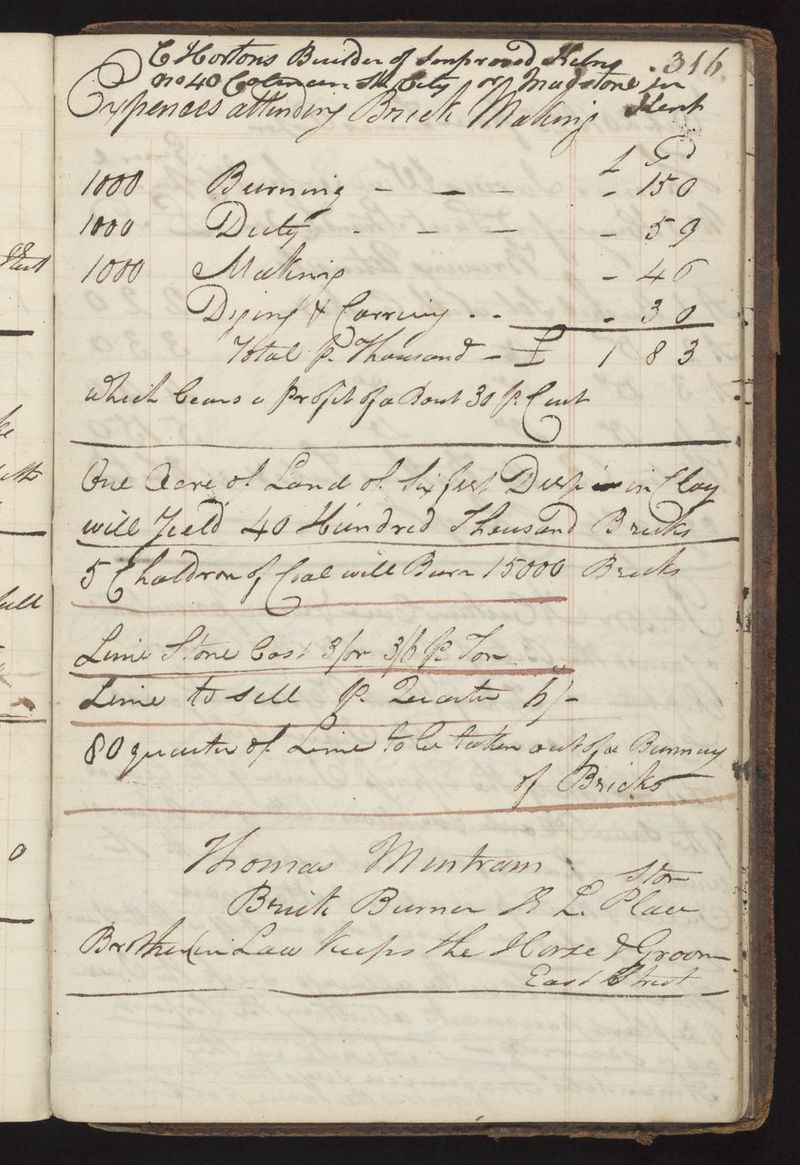 C Hortons Builder of Improved Kilns 316
No 40 Coleman St City or Madstone in
Expences attending Brick Making Kent
£ S d
1000 Burning - - - - 15 0
1000 Duty - - - - 5 9
1000 Making - 4 6
Diging & Carring - - - 3 0
Total pr Thousand - £ 1 8 3
which bears a profit of a Bout 30 pr Cent
One Acre of Land of Six feet Deep in Clay
will Yeeld 40 Hundred Thousand Bricks
5 Chaldron of Coal will Burn 15000 Bricks
Lime Stone Cost 3/ or 3/6 pr Ton
Lime to sell pr Quarter 6/-
80 quarter of Lime to be taken out of a Burning
of Bricks
Thomas Mintram
Brick Burner Place
Brother in Law keeps the Horse & Groom
East Street
0